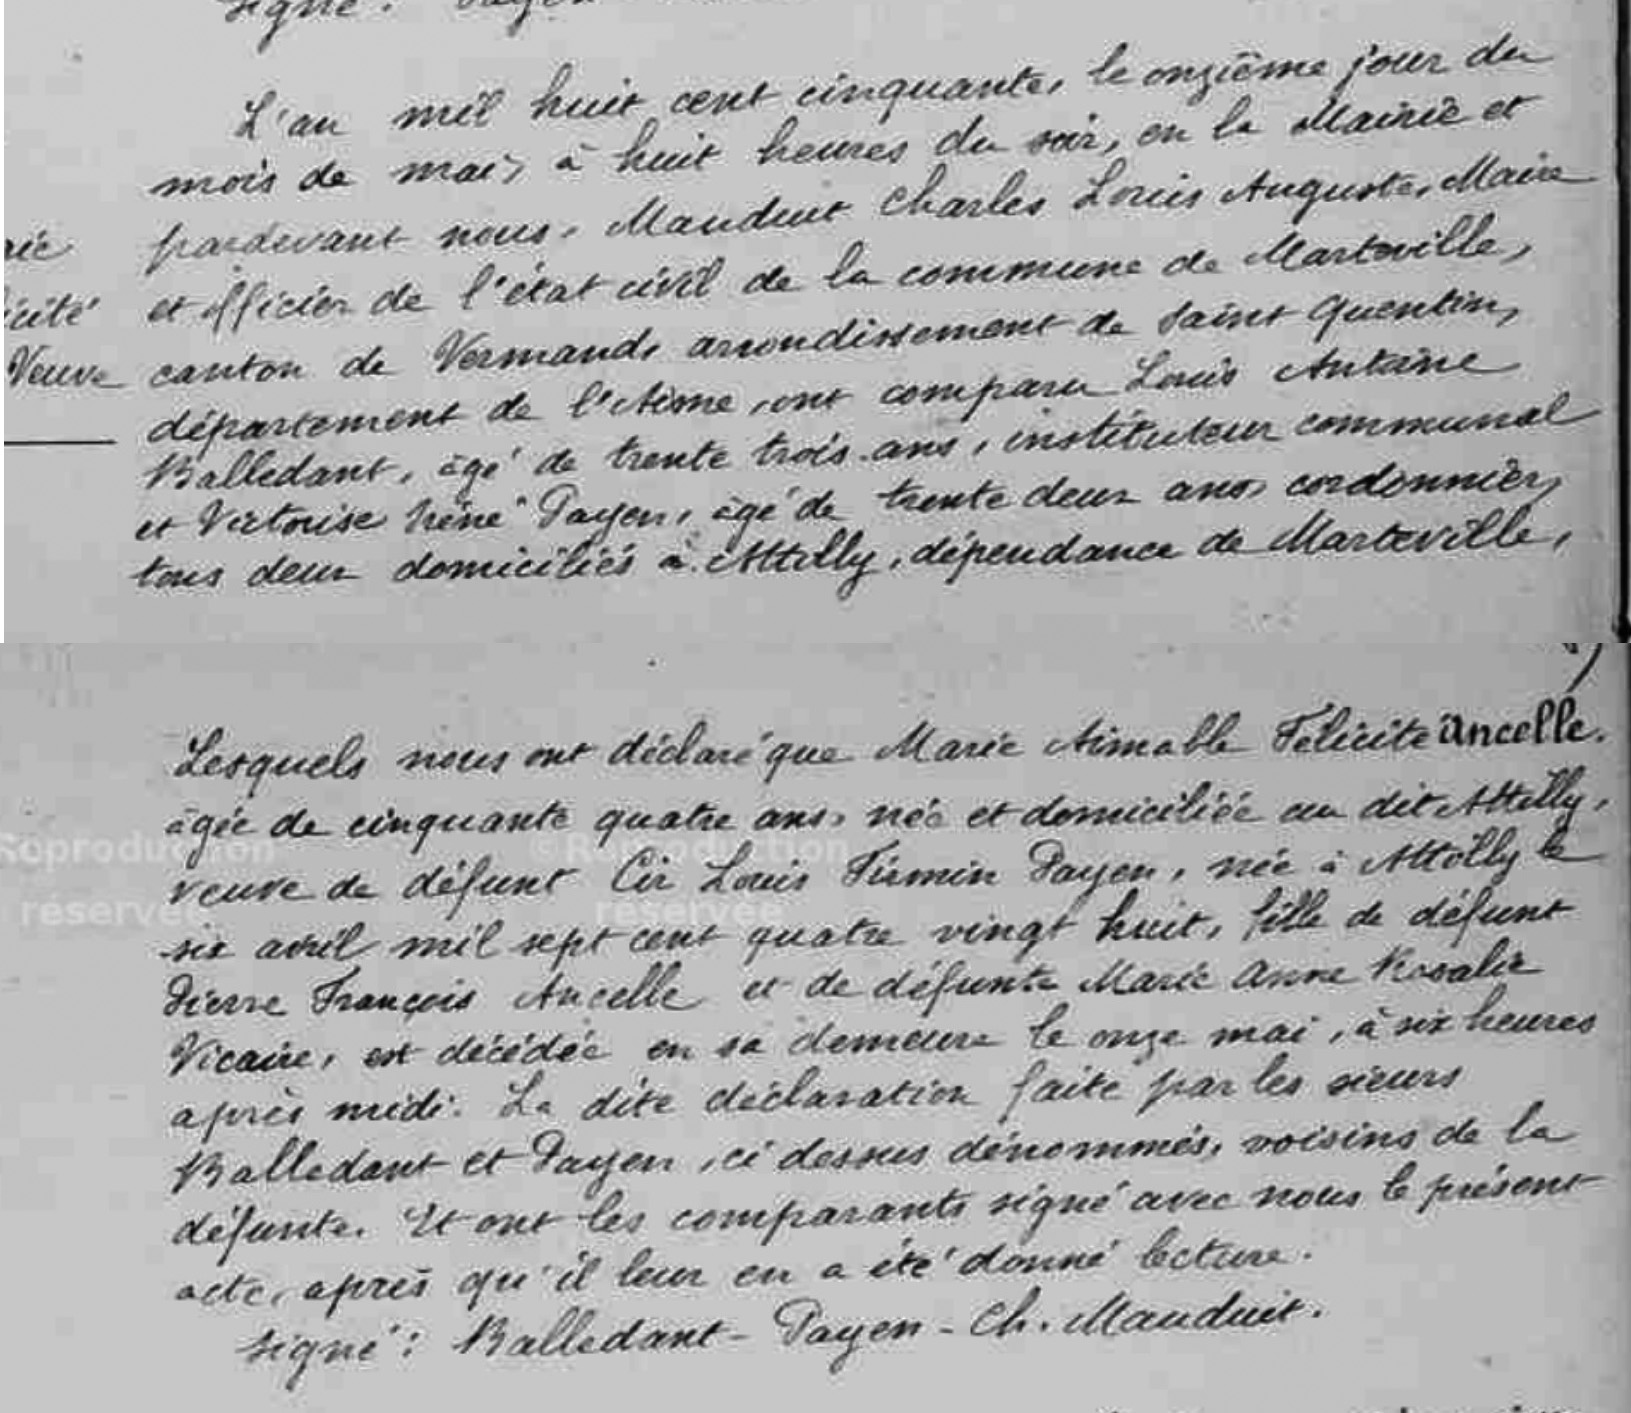 signé : Payen
L'an mil huit cent cinquante, le onzième jour du
mois de mai, à huit heures du soir, en la Mairie et
pardevant nous, Mauduit Charles Louis Auguste, Maire
et officier de l'état civil de la commune de Marteville,
canton de Vermand, arrondissement de Saint Quentin,
département de l'Aisne, ont comparu Louis Antoine
Balledant, âgé de trente trois ans, instituteur communal
et Victorise Irène Payen, âgé de trente deux ans, cordonnier,
tous deux domiciliés à Attilly, dépendance de Marteville,
icité
Veuve
Lesquels nous ont déclaré que Marie Aimable Félicité Ancelle.
âgée de cinquante quatre ans, née et domiciliée au dit Attilly,
veuve de défunt Cir Louis Firmin Payen, née à Attilly le
six avril mil sept cent quatre vingt huit, fille de défunt
Pierre François Ancelle et de défunte Marie Anne Rosalie
Vicaire, est décédée en sa demeure le onze mai, à six heures
après midi. La dite déclaration faite par les sieurs
Balledant et Payen, ci dessus dénommés, voisins de la
défunte. Et ont les comparants signé avec nous le présent
acte, après qu'il leur en a été donné lecture.
signé : Balledant - Payen - Ch. Mauduit.
Reproduction
réservée
© Reproduction
réservée